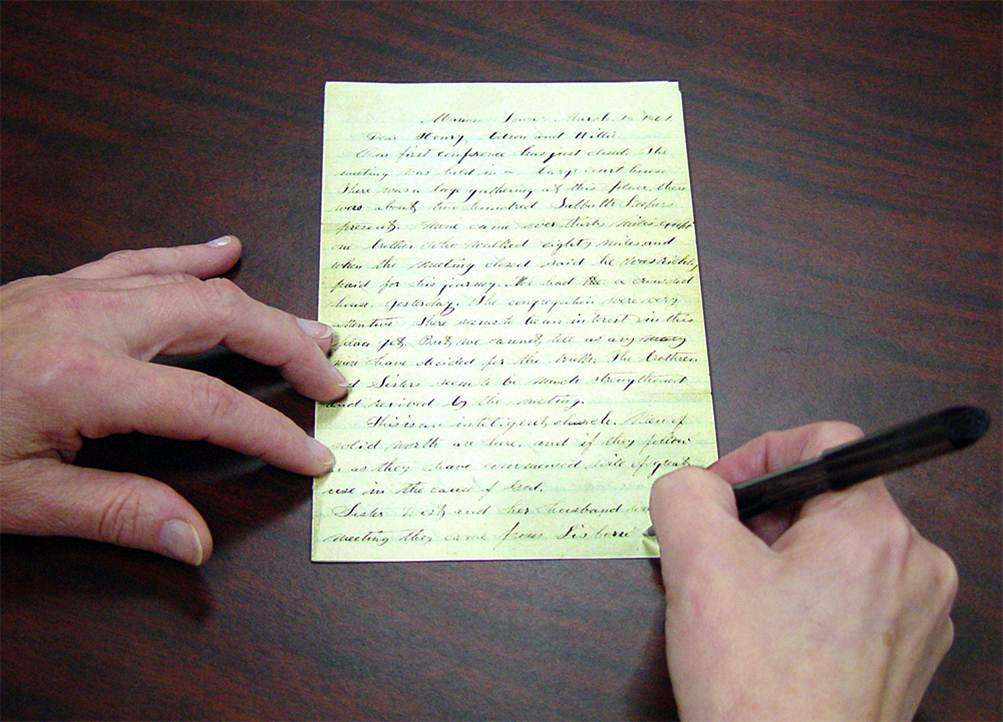 Marion Iowa March 18 1861
Dear Henry, Edson and Willie
Our first conference has just closed. The
meeting was held in a large court house
There was a large gathering at this place, there
were about two hundred Sabbath Keepers
present, Some came over thirty miles, except
one brother who walked eighty miles and
when the meeting closed said he was richly
paid for his journey. We had a crowded
house yesterday. The congregation were very
attentive. There seems to be an interest in this
place yet. But we cannot tell as any many
more have decided for the truth. The brethren
and Sisters seem to be much strengthened
and revived by the meeting.
This is an intelligent church. Men of
solid worth are here, and if they follow
as they have commenced will of great
use in the cause of God.
Sister West and her husband
meeting they came from Lisbon